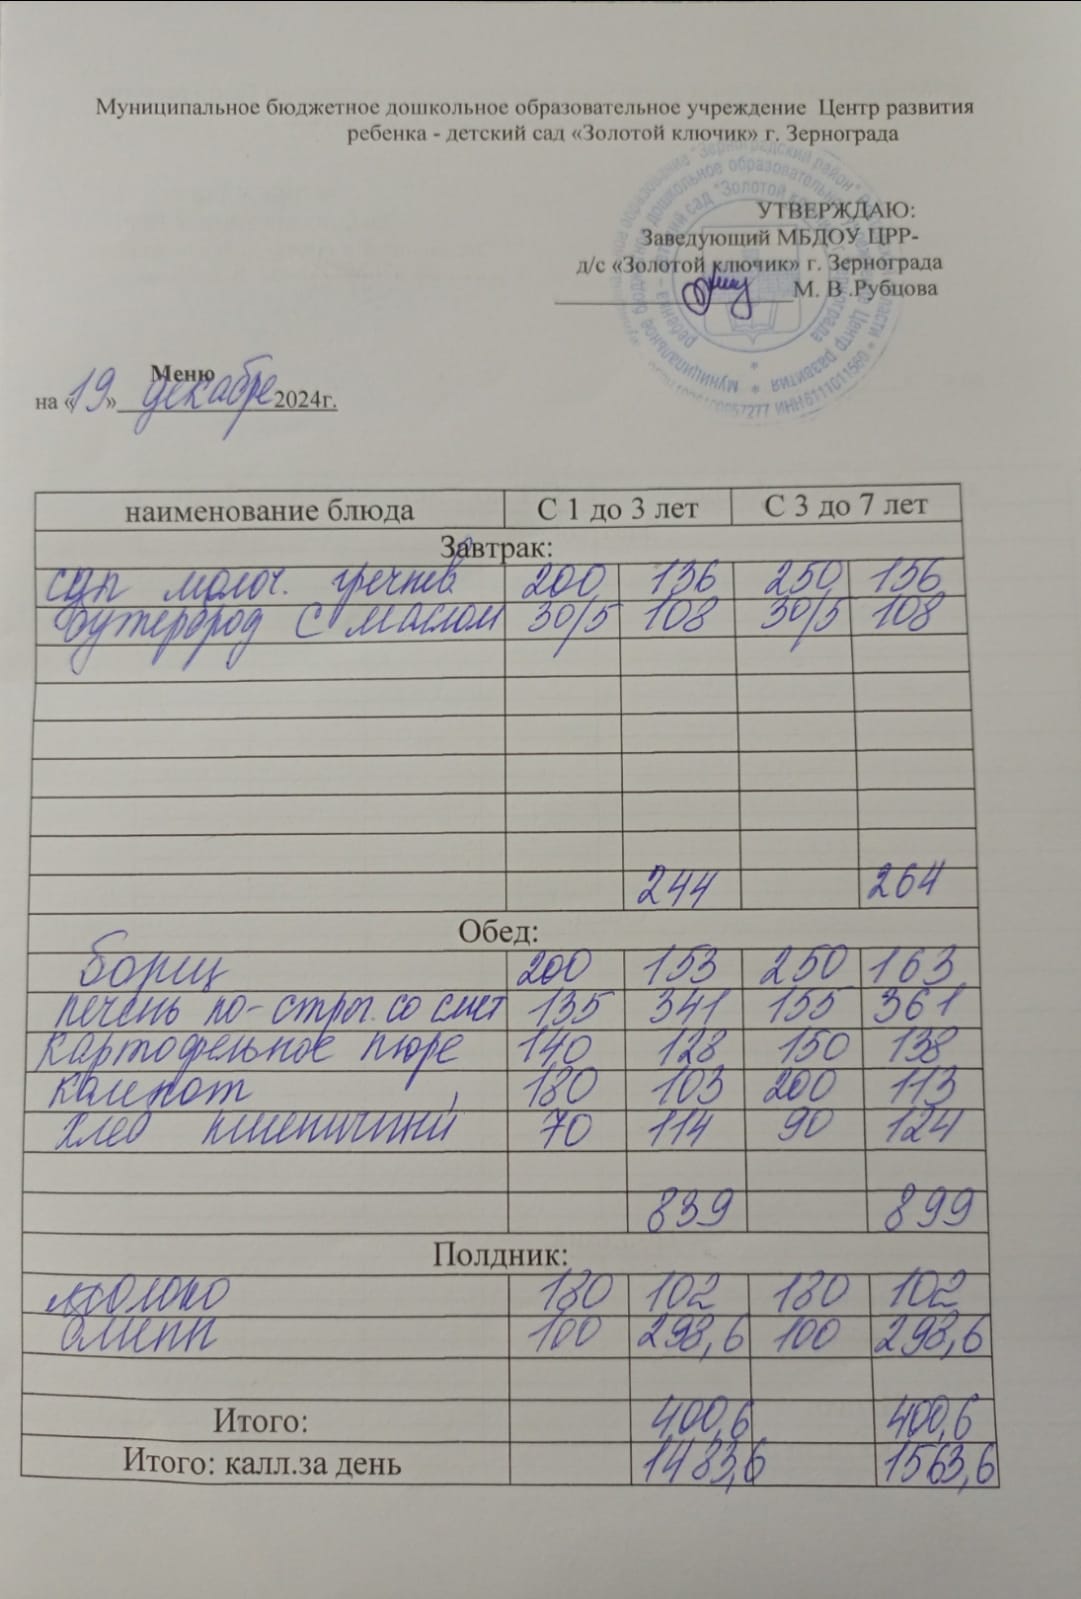 Муниципальное бюджетное дошкольное образовательное учреждение Центр развития
ребенка - детский сад «Золотой ключик» г. Зернограда
УТВЕРЖДАЮ:
Заведующий МБДОУ ЦРР-
д/с «Золотой ключик» г. Зернограда
М. В .Рубцова
Меню
на «19» декабре 2024г.
наименование блюда С 1 до 3 лет С 3 до 7 лет
Завтрак:
суп молоч. гречнев 200 136 250 156
Бутерброд с маслом 30/5 108 30/5 108
244 264
Обед:
борщ 200 153 250 163
печень по-стрг. со смет 135 341 155 361
картофельное пюре 140 128 150 138
компот 180 103 200 113
хлеб пшеничный 70 114 90 124
839 899
Полдник:
молоко 180 102 180 102
100 298,6 100 298,6
Итого: 400,6 400,6
Итого: калл.за день 1483,6 1563,6